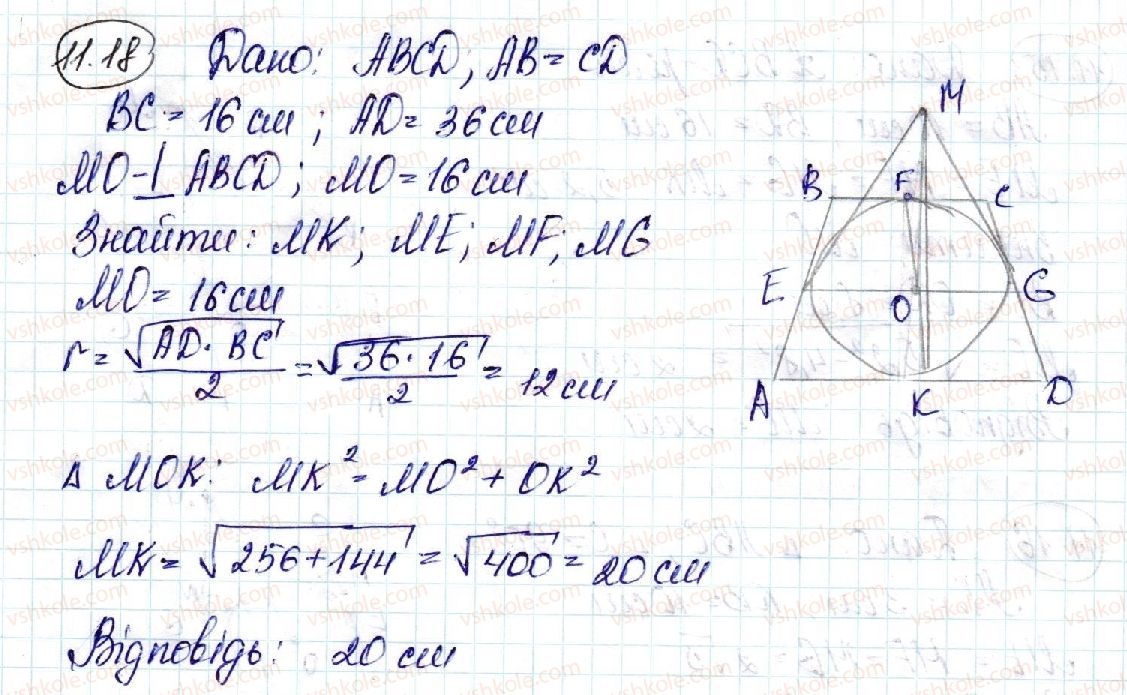 11.18 Дано: ABCD; AB = CD
BC = 16 см ; AD = 36 см
MO ⊥ ABCD ; MO = 16 см
Знайти: MK; ME; MF; MG
MO = 16 см
r = √(AD · BC)/2 = √(36 · 16)/2 = 12 см
Δ MOK: MK² = MO² + OK²
MK = √(256 + 144) = √400 = 20 см
Відповідь: 20 см
M
B F C
E O G
A K D
vshkole.com